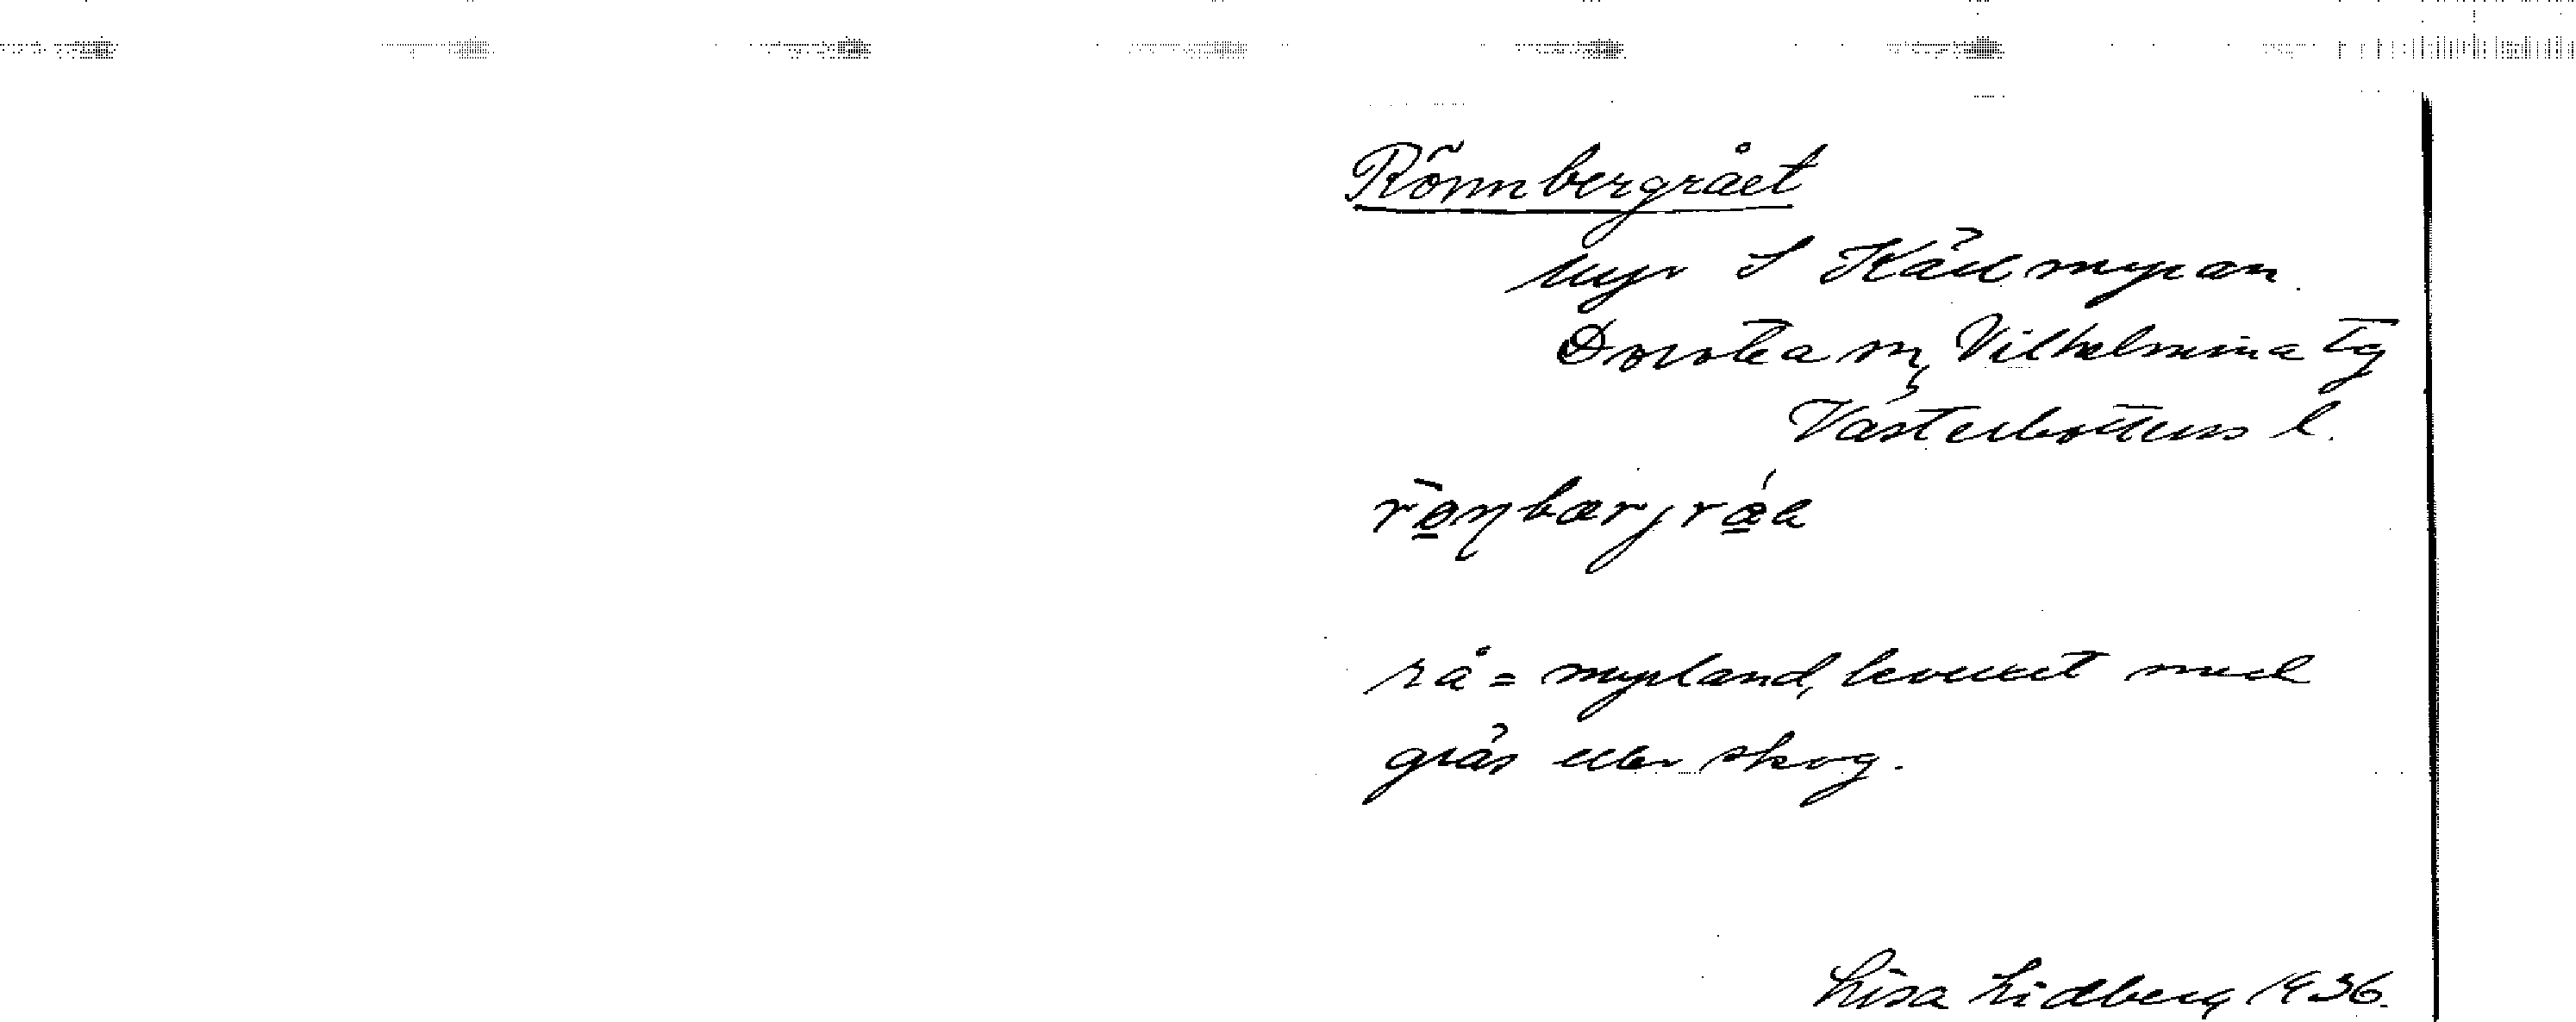 Rönnbergrået
myr S Källmyran.
Dorotea sn, Vilhelmina tg
Västerbottens l.
rå = myrland, bevuxet med
gräs eller skog.
Lisa Lidberg 1936.